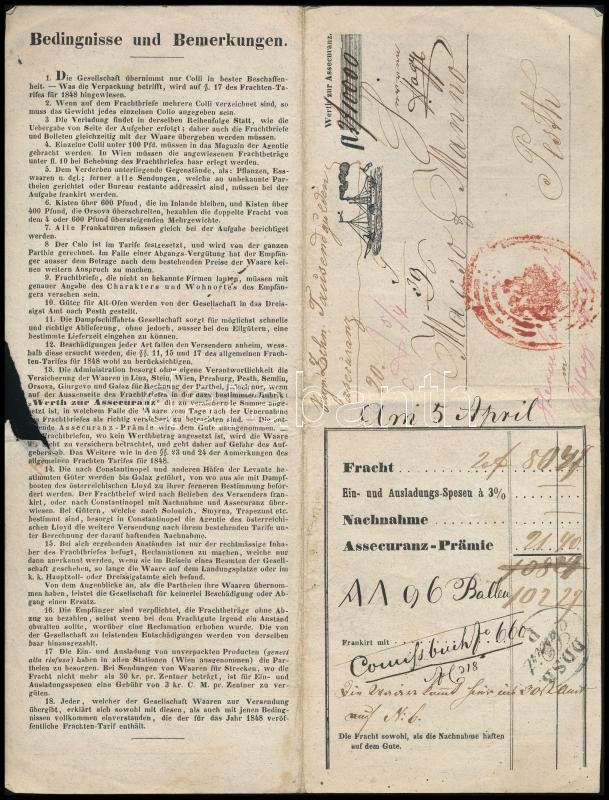 Bedingnisse und Bemerkungen.
1. Die Gesellschaft übernimmt nur Colli in bester Beschaffen-
heit. — Was die Verpackung betrifft, wird auf §. 17 des Frachten-Ta-
rifes für 1848 hingewiesen.
2. Wenn auf dem Frachtbriefe mehrere Colli verzeichnet sind, so
muss das Gewicht jedes einzelnen Collo angegeben sein.
3. Die Verladung findet in derselben Reihenfolge Statt, wie die
Uebergabe von Seite der Aufgeber erfolgt; daher auch die Frachtbriefe
und Bolleten gleichzeitig mit der Waare übergeben werden müssen.
4. Einzelne Colli unter 100 Pfd. müssen in das Magazin der Agentie
gebracht werden. In Wien müssen die angewiesenen Frachtbeträge
unter fl. 10 bei Behebung des Frachtbriefes baar erlegt werden.
5. Dem Verderben unterliegende Gegenstände, als: Pflanzen, Ess-
waaren u. dgl.; ferner alle Sendungen, welche an unbekannte Par-
theien gerichtet oder Bureau restante addressirt sind, müssen bei der
Aufgabe frankirt werden.
6. Kisten über 600 Pfund, die im Inlande bleiben, und Kisten über
400 Pfund, die Orsova überschreiten, bezahlen die doppelte Fracht von
dem 4 oder 600 Pfund übersteigenden Mehrgewichte.
7. Alle Frankaturen müssen gleich bei der Aufgabe berichtiget
werden.
8 Der Calo ist im Tarife festgesetzt, und wird von der ganzen
Parthie gerechnet. Im Falle einer Abgangs-Vergütung hat der Empfän-
ger ausser dem Betrage nach dem bestehenden Preise der Waare kei-
nen weitern Anspruch zu machen.
9. Frachtbriefe, die nicht an bekannte Firmen lauten, müssen mit
genauer Angabe des Charakters und Wohnortes des Empfän-
gers versehen sein.
10. Güter für Alt-Ofen werden von der Gesellschaft in das Dreis-
sigst Amt nach Pesth gestellt.
11. Die Dampfschiffahrts Gesellschaft sorgt für möglichst schnelle
und richtige Ablieferung, ohne jedoch, ausser bei den Eilgütern, eine
bestimmte Lieferzeit eingehen zu können.
12. Beschädigungen jeder Art fallen den Versendern anheim, wess-
halb diese ersucht werden, die §§. 11, 15 und 17 des allgemeinen Frach-
ten-Tarifes für 1848 wohl zu berücksichtigen.
13. Die Administration besorgt ohne eigene Verantwortlichkeit die
Versicherung der Waaren in Linz, Stein, Wien, Presburg, Pesth, Semlin,
Orsova, Giurgevo und Galaz für Rechnung der Parthei, jedoch nur, wenn
auf der Aussenseite des Frachtbriefes in der dazu bestimmten Rubrik
„Werth zur Assecuranz" die zu versichernde Summe
setzt ist, in welchem Falle die Waare vom Tage nach der Uebernahme
Frachtbriefes als richtig versichert zu betrachten sind. — Die
Assecuranz-Prämie wird dem Gute nachgenommen. —
Frachtbriefen, wo kein Werthbetrag angesetzt ist, wird die Waare
nicht zu versichern betrachtet, und geht daher auf Gefahr des Aufge-
bers ab. Das Weitere wie in den §§. 23 und 24 der Anmerkungen des
allgemeinen Frachten-Tarifes für 1848.
14. Die nach Constantinopel und anderen Häfen der Levante be-
stimmten Güter werden bis Galaz geführt, von wo aus sie mit Dampf-
booten des österreichischen Lloyd zu ihrer ferneren Bestimmung beför-
dert werden. Der Frachtbrief wird nach Belieben des Versenders fran-
kirt, oder nach Constantinopel mit Nachnahme und Assecuranz über-
wiesen. Bei Gütern, welche nach Solonich, Smyrna, Trapezunt etc.
bestimmt sind, besorgt in Constantinopel die Agentie des österreichi-
schen Lloyd die weitere Versendung nach ihrem bestehenden Tarife un-
ter Berechnung der darauf haftenden Nachnahme.
15. Bei sich ergebenden Anständen ist nur der rechtmässige Inha-
ber des Frachtbriefes befugt, Reclamationen zu machen, welche nur
dann anerkannt werden, wenn sie im Beisein eines Beamten der Gesell-
schaft geschehen, so lange die Waare auf dem Landungsplatze oder im
k. k. Hauptzoll- oder Dreissigstamte sich befand.
Von dem Augenblicke an, als die Partheien ihre Waaren übernom-
men haben, leistet die Gesellschaft für keinerlei Beschädigung oder Ab-
gang einen Ersatz.
16. Die Empfänger sind verpflichtet, die Frachtbeträge ohne Ab-
zug zu bezahlen, selbst wenn bei dem Frachtgute irgend ein Anstand
obwalten sollte, worüber eine Reclamation erhoben wurde. Die von
der Gesellschaft zu leistenden Entschädigungen werden von derselben
baar hinausgezahlt.
17 Die Ein- und Ausladung von unverpackten Producten (generi
alla rinfusa) haben in allen Stationen (Wien ausgenommen) die Par-
theien zu besorgen. Bei Sendungen von Waaren für Strecken, wo die
Fracht nicht mehr als 30 kr. pr. Zentner beträgt, ist für Ein- und
Ausladungsspesen eine Gebühr von 3 kr. C. M. pr. Zentner zu ver-
güten.
18. Jeder, welcher der Gesellschaft Waaren zur Versendung
übergibt, erklärt sich sowohl mit diesen, als auch mit jenen Beding-
nissen vollkommen einverstanden, die der für das Jahr 1848 veröf-
fentliche Frachten-Tarif enthält.
Werth zur Assecuranz.
Tausend gulden
Assecuranz
Pesth
Am 5 April
Fracht
Ein- und Ausladungs-Spesen à 3%
Nachnahme
Assecuranz-Prämie 21.40
AA 96 Ballen 102 29
Frankirt mit
Die Fracht sowohl, als die Nachnahme haften
auf dem Gute.
DDSG